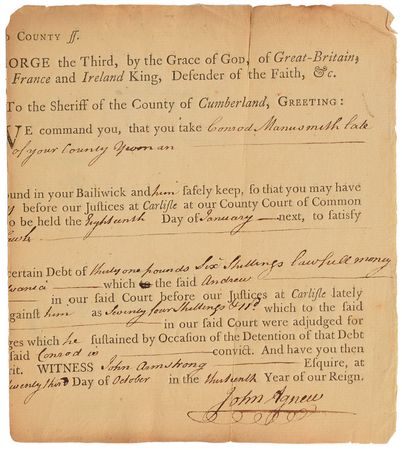 COUNTY ss.
ORGE the Third, by the Grace of God, of Great-Britain,
France and Ireland King, Defender of the Faith, &c.
To the Sheriff of the County of Cumberland, GREETING:
WE command you, that you take Conrod Manusmith late
of your County Yeoman
ound in your Bailiwick and him safely keep, so that you may have
before our Justices at Carlisle at our County Court of Common
o be held the Eighteenth Day of January next, to satisfy
certain Debt of thirty one pounds Six Shillings lawfull money
which the said Andrew
in our said Court before our Justices at Carlisle lately
against him as Seventy four Shillings & 11d which to the said
in our said Court were adjudged for
ges which he sustained by Occasion of the Detention of that Debt
said Conrod is convict. And have you then
rit. WITNESS John Armstrong Esquire, at
twenty third Day of October in the thirteenth Year of our Reign.
John Agnew